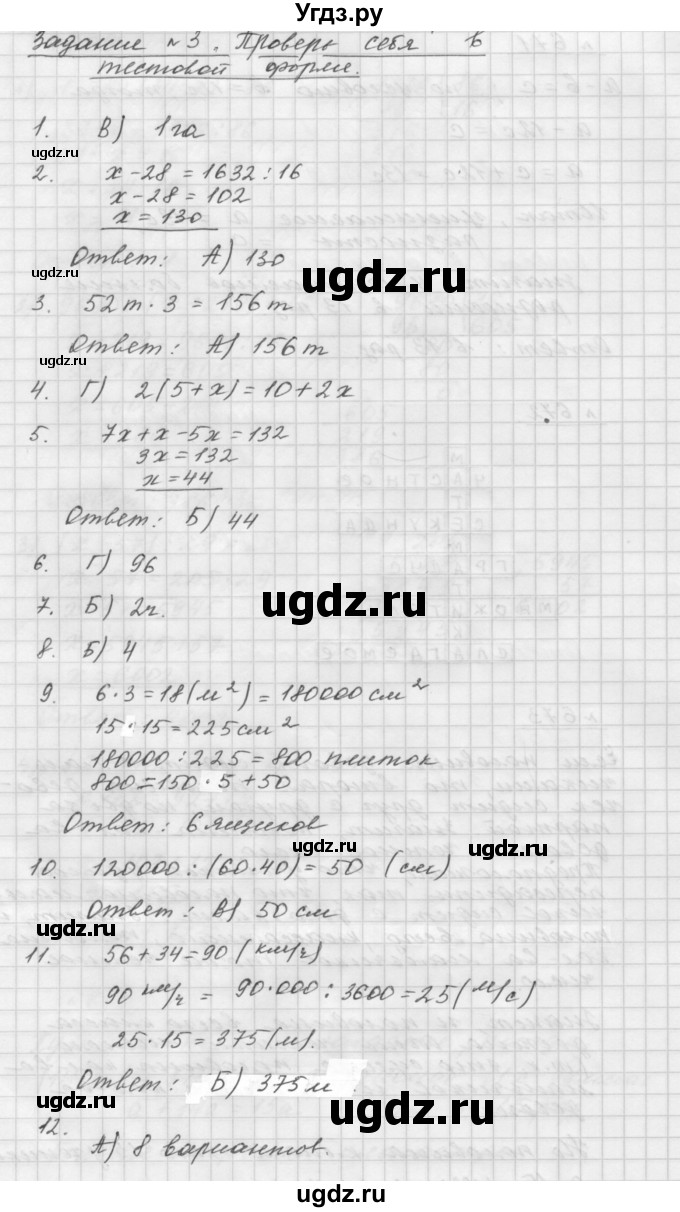 Угдз.ру
Задание №3. Проверь себя в
тестовой форме.
1. В) 1га
udgz.ru
2. х-28=1632:16
х-28=102
х=130
Ответ: А) 130
udgz.ru
ugdz.ru
3. 52т·3=156т
Ответ: А) 156т
ugdz.ru
4. Г) 2(5+х)=10+2х
5. 7х+х-5х=132
3х=132
х=44
Ответ: Б) 44
6. Г) 96
ugdz.ru
7. Б) 2ч.
8. Б) 4
9. 6·3=18(м²)=180000см²
15·15=225см²
180000:225=800 плиток
800=150·5+50
Ответ: 6 ящиков
ugdz.ru
ugdz.ru
10. 120000:(60·40)=50 (см)
Ответ: В) 50 см
ugdz.ru
11. 56+34=90 (км/ч)
90 км/ч = 90·000:3600=25(м/с)
25·15=375(м).
Ответ: Б) 375м.
ugdz.ru
12.
А) 8 вариантов.
ugdz.ru
ugdz.ru